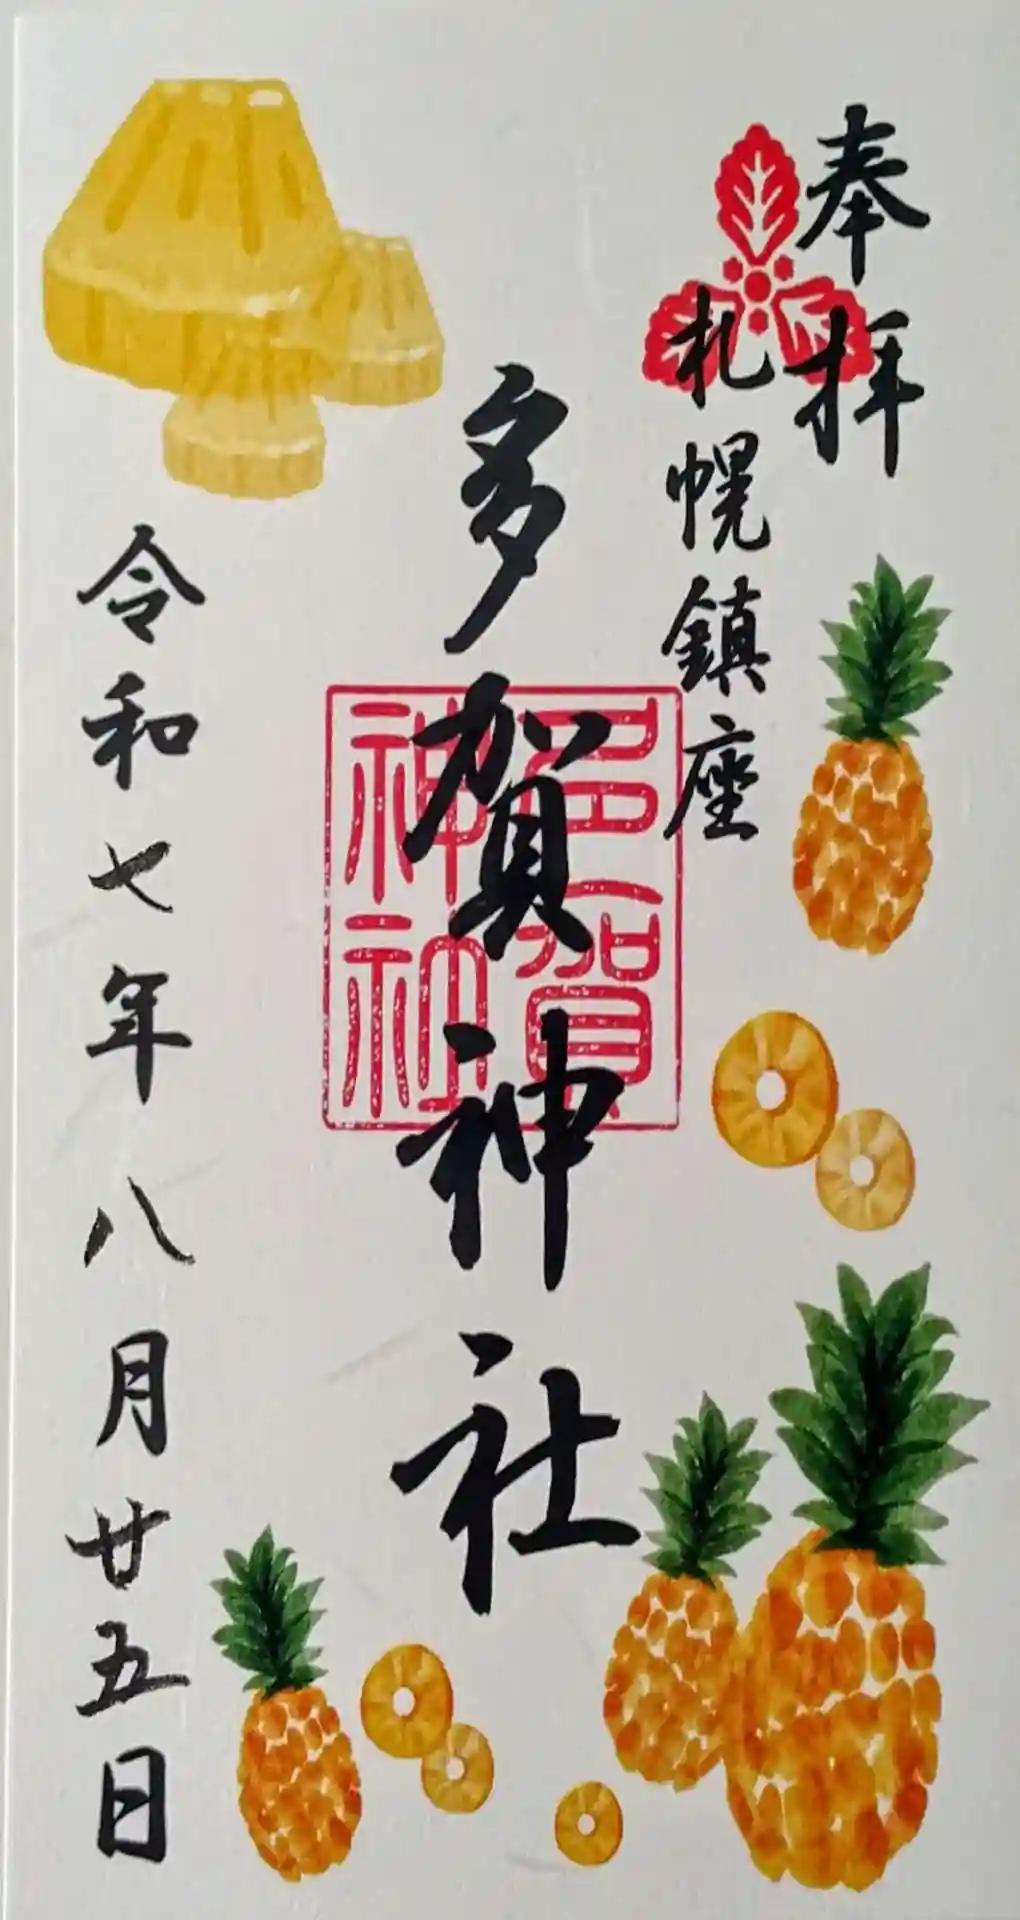 奉拝
札幌鎮座
多賀神社
多賀神社
令和七年八月廿五日